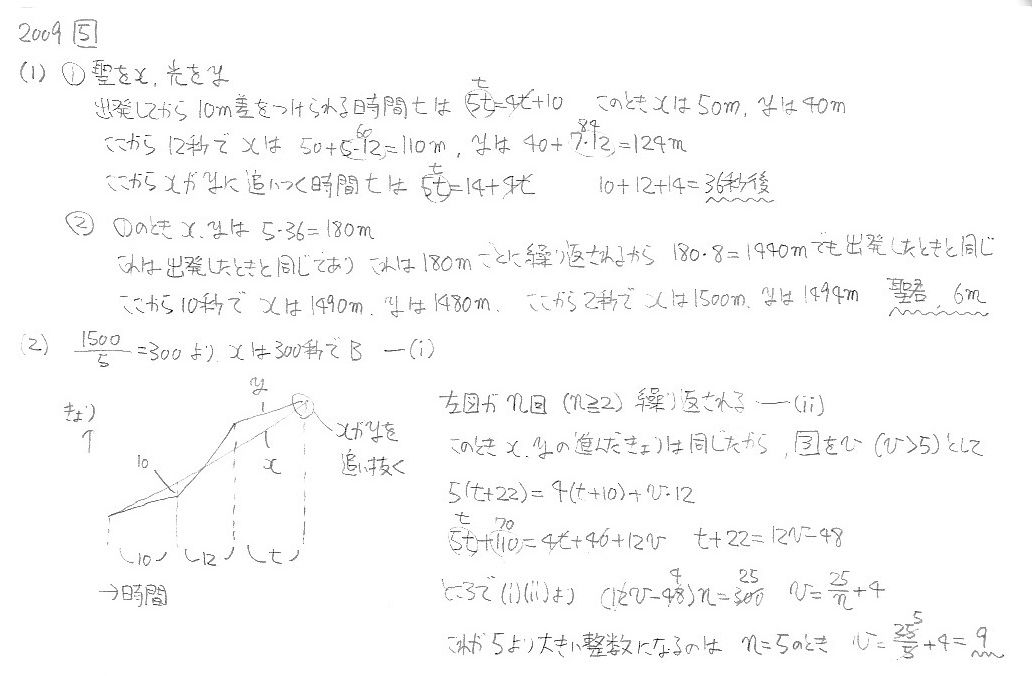 2009 5
(1) ① 聖をx, 光をy
出発してから10m差をつけられる時間tは 5t=4t+10 このときxは50m, yは40m
t
ここから12秒でxは 50+5・12=110m, yは 40+7・12=124m
60 84
ここからxがyに追いつく時間tは 5t=14+4t 10+12+14=36秒後
t
② ①のときx, yは 5・36=180m
これは出発したときと同じであり これは180mごとに繰り返されるから 180・8=1440mでも出発したときと同じ
ここから10秒でxは1490m, yは1480m, ここから2秒でxは1500m, yは1494m 聖君, 6m
(2) 1500/5=300より xは300秒でB ―(i)
きょり
↑
y
x
10
xがyを
追い抜く
10 12 t
→時間
左図がn回 (n≧2) 繰り返される ―(ii)
このときx, yの進んだきょりは同じだから, 7をv (v>5)として
5(t+22)=4(t+10)+v・12
t 70
5t+110=4t+40+12v t+22=12v-48
ところで(i)(ii)より (12v-48)n=300 v=25/n+4
4 25
これが5より大きい整数になるのは n=5のとき v=25/5+4=9
5